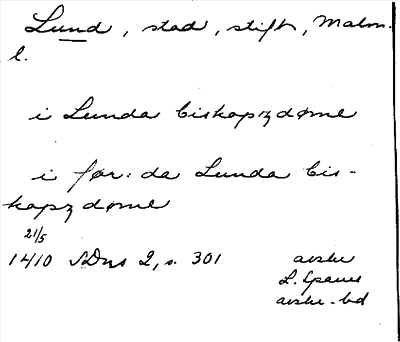 Lund, stad, stift, Malm.
l.
i Lunda biskopzdøme
i før: da Lunda bis-
kapz døme
21/5
1410 SDns 2, s. 301 avskr
L. Spanes
avskr. bd